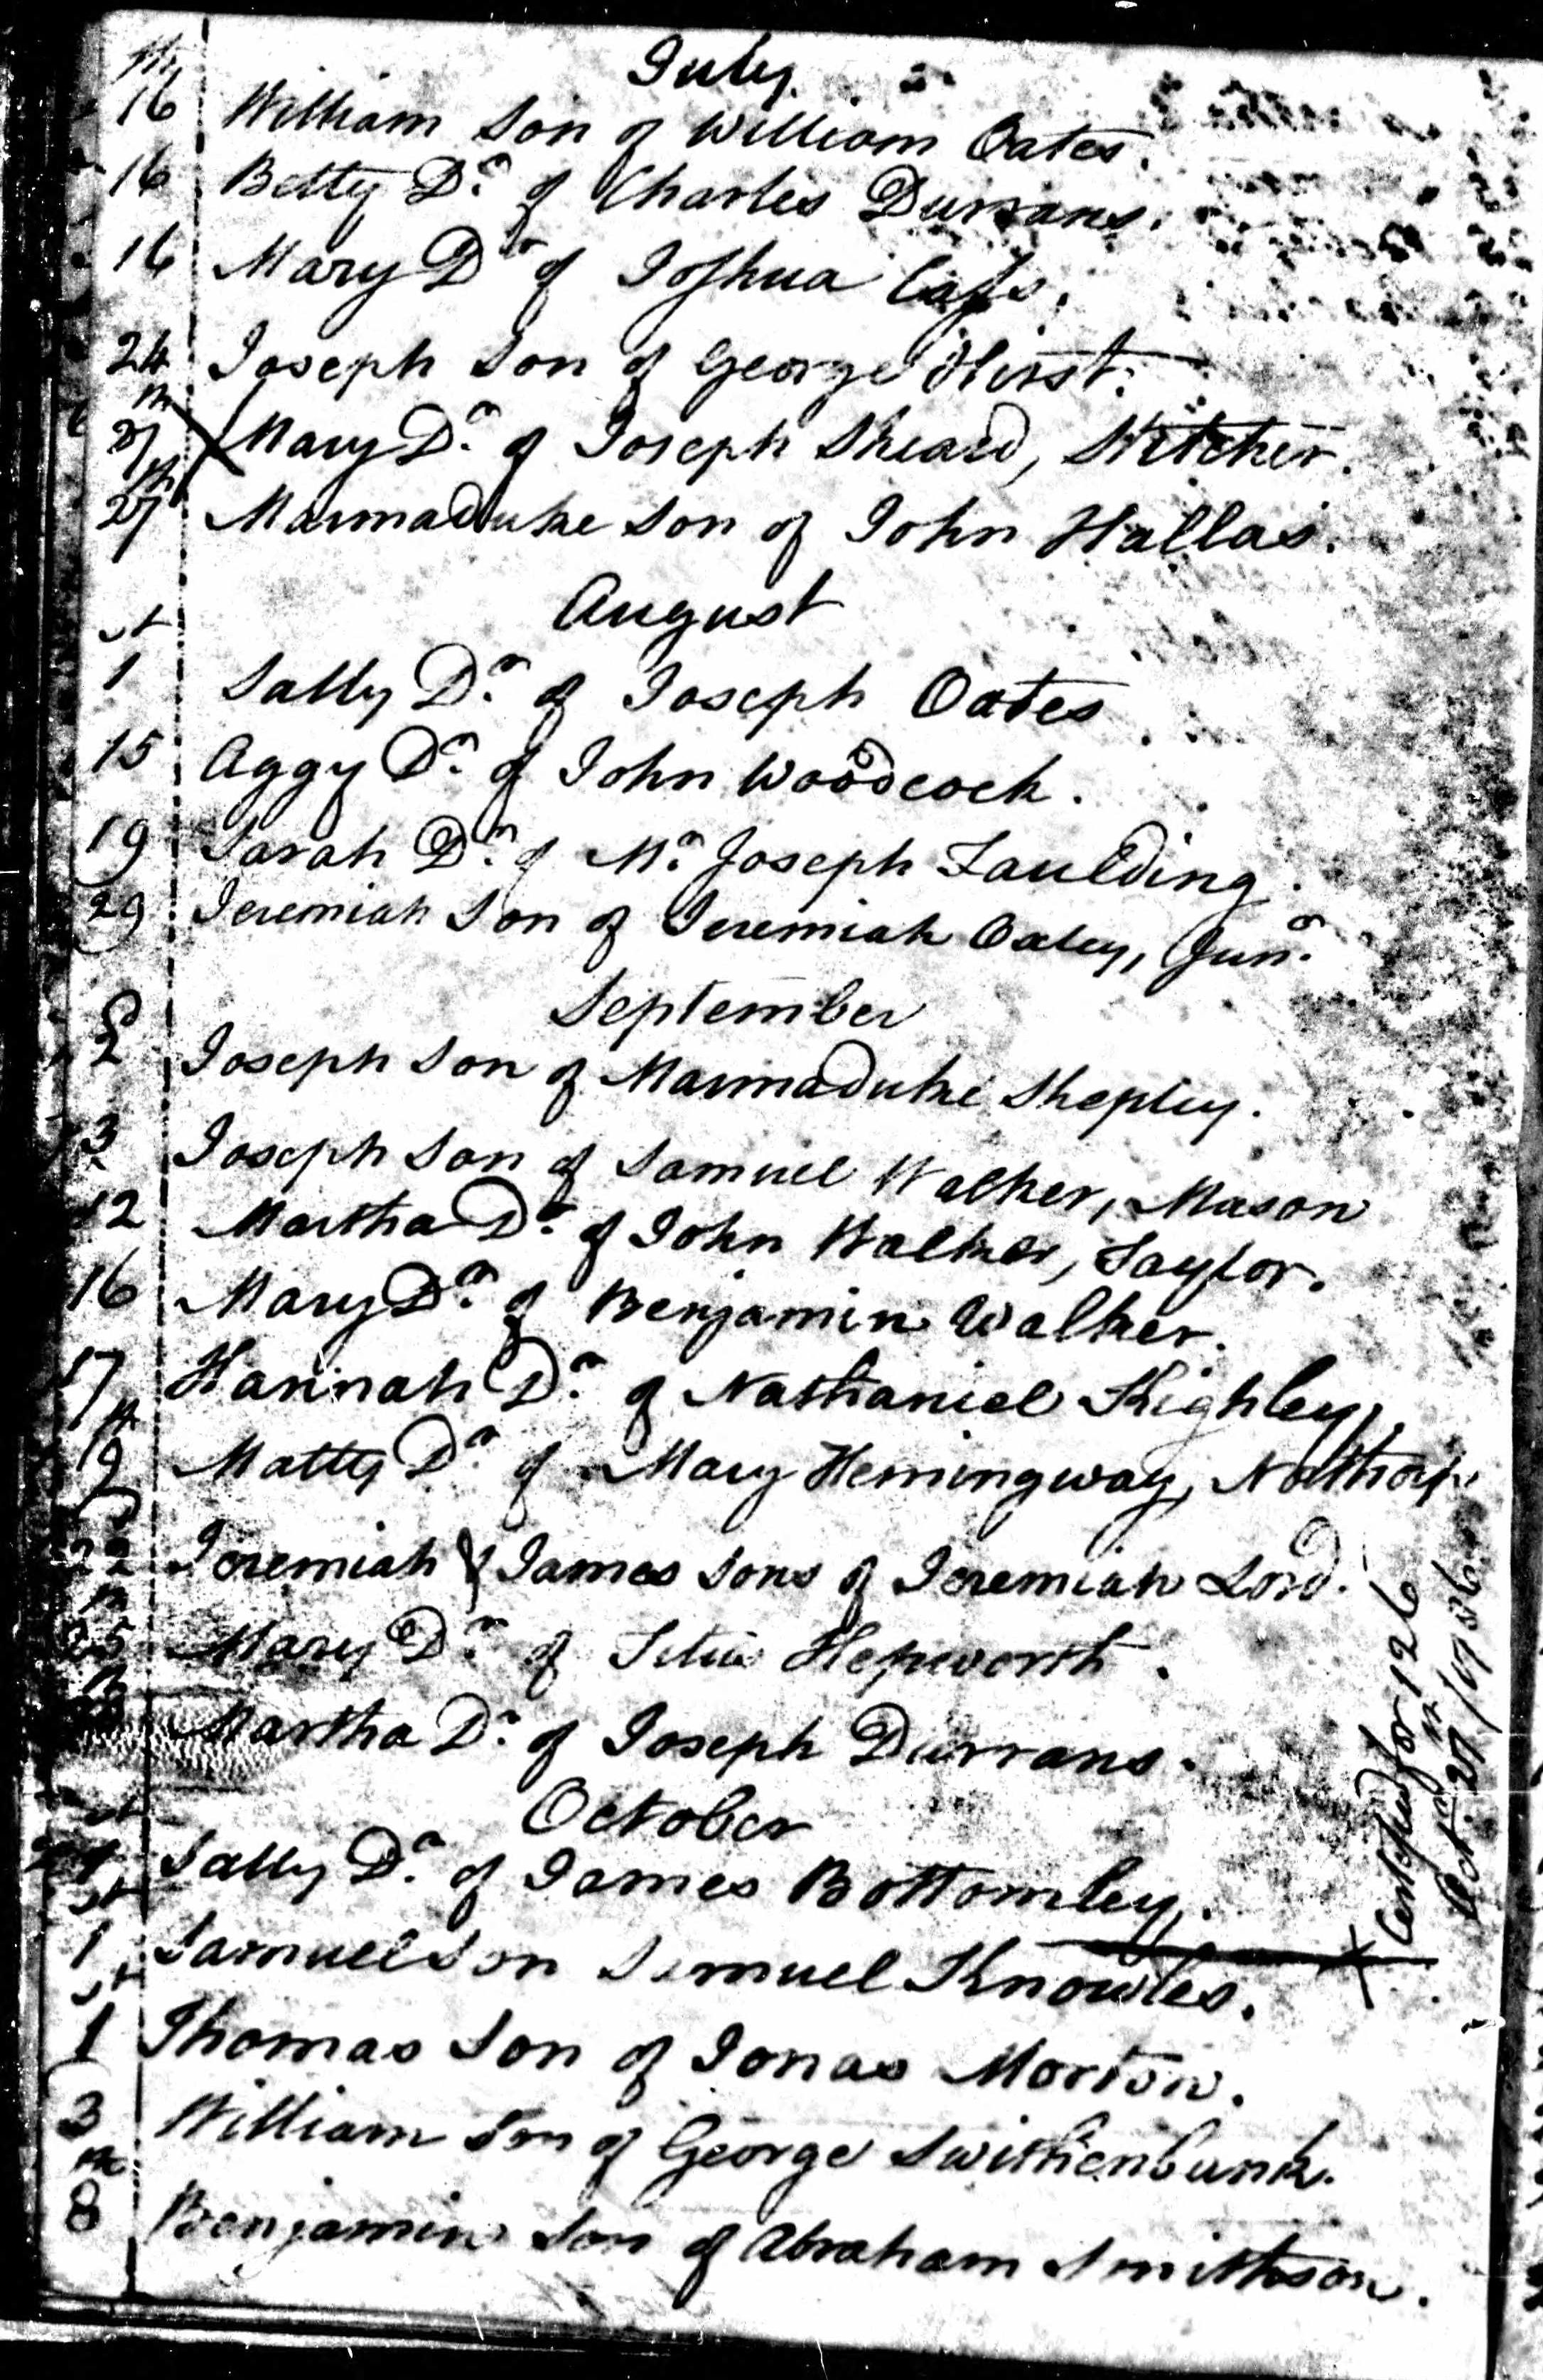 July.
th
16 William Son of William Oates.
16 Betty Dr. of Charles Durrans.
16 Mary Dr. of Joshua
24 Joseph Son of George Hirst.
th
27 Mary Dr. of Joseph Sheard, Stitcher.
th
27 Marmaduke Son of John Hallas.
August
st
1 Sally Dr. of Joseph Oates
15 Aggy Dr. of John Woodcock.
19 Sarah Dr. of Mr. Joseph Faulding.
29 Jeremiah Son of Jeremiah Oxley, Junr.
September
2 Joseph Son of Marmaduke Shepley.
3 Joseph Son of Samuel Walker, Mason
12 Martha Dr. of John Walker, Taylor.
16 Mary Dr. of Benjamin Walker.
17 Hannah Dr. of Nathaniel Kighley.
th
19 Matty Dr. of Mary Hemingway,
22 Jeremiah & James Sons of Jeremiah Lord.
th
25 Mary Dr. of Titus Hepworth.
Martha Dr. of Joseph Durrans.
October
st
1 Sally Dr. of James Bottomley.
st
1 Samuel Son Samuel Knowles.
st
1 Thomas Son of Jonas Morton.
3 William Son of George Swithenbank.
th
8 Benjamin Son of Abraham Smithson.
Certified for 126
Octr. 2d /1786